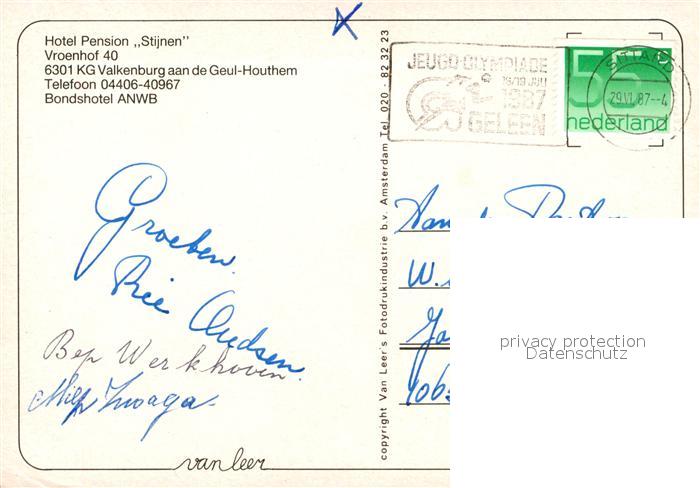 Hotel Pension „Stijnen"
Vroenhof 40
6301 KG Valkenburg aan de Geul-Houthem
Telefoon 04406-40967
Bondshotel ANWB
JEUGD OLYMPIADE
15/19 JULI
1987
GELEEN
SITTARD
29.VI.87--4
55 c
nederland
copyright Van Leer's Fotodrukindustrie b.v. Amsterdam Tel. 020 - 82 32 23
Groeten.
Rie Oudsen.
Bep Werkhoven.
Miep Zwaga
Aan
W.
privacy protection
Datenschutz
van leer